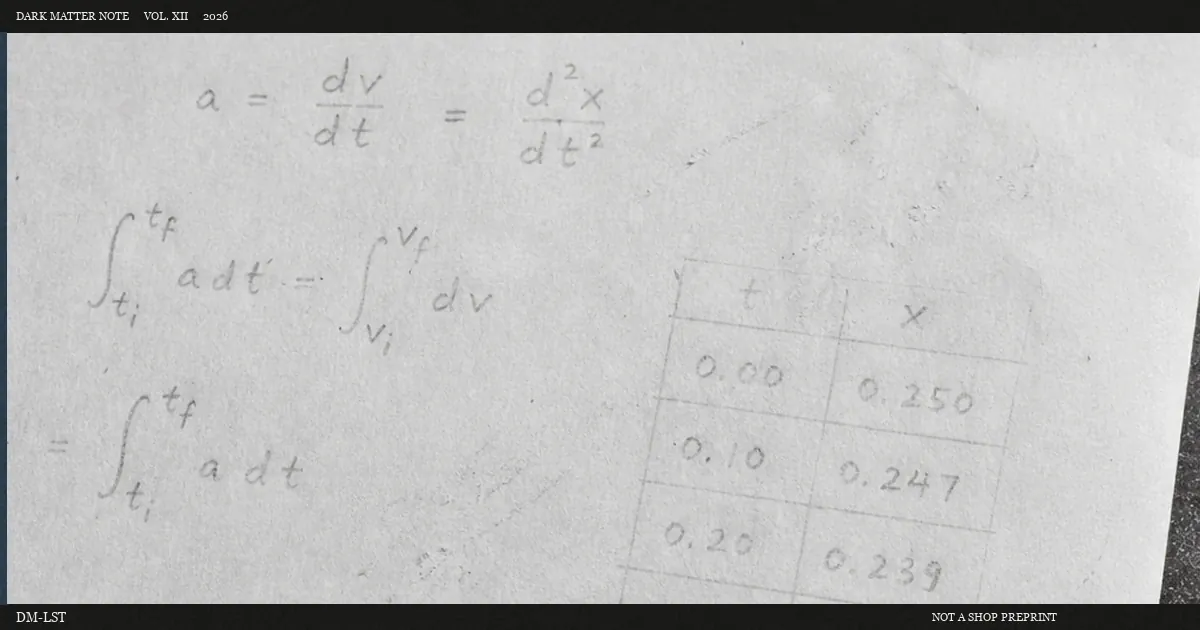 DARK MATTER NOTE VOL. XII 2026
a = dv/dt = d²x/dt²
∫_{t_i}^{t_f} a dt = ∫_{v_i}^{v_f} dv
= ∫_{t_i}^{t_f} a dt
t x
0.00 0.250
0.10 0.247
0.20 0.239
DM-LST NOT A SHOP PREPRINT